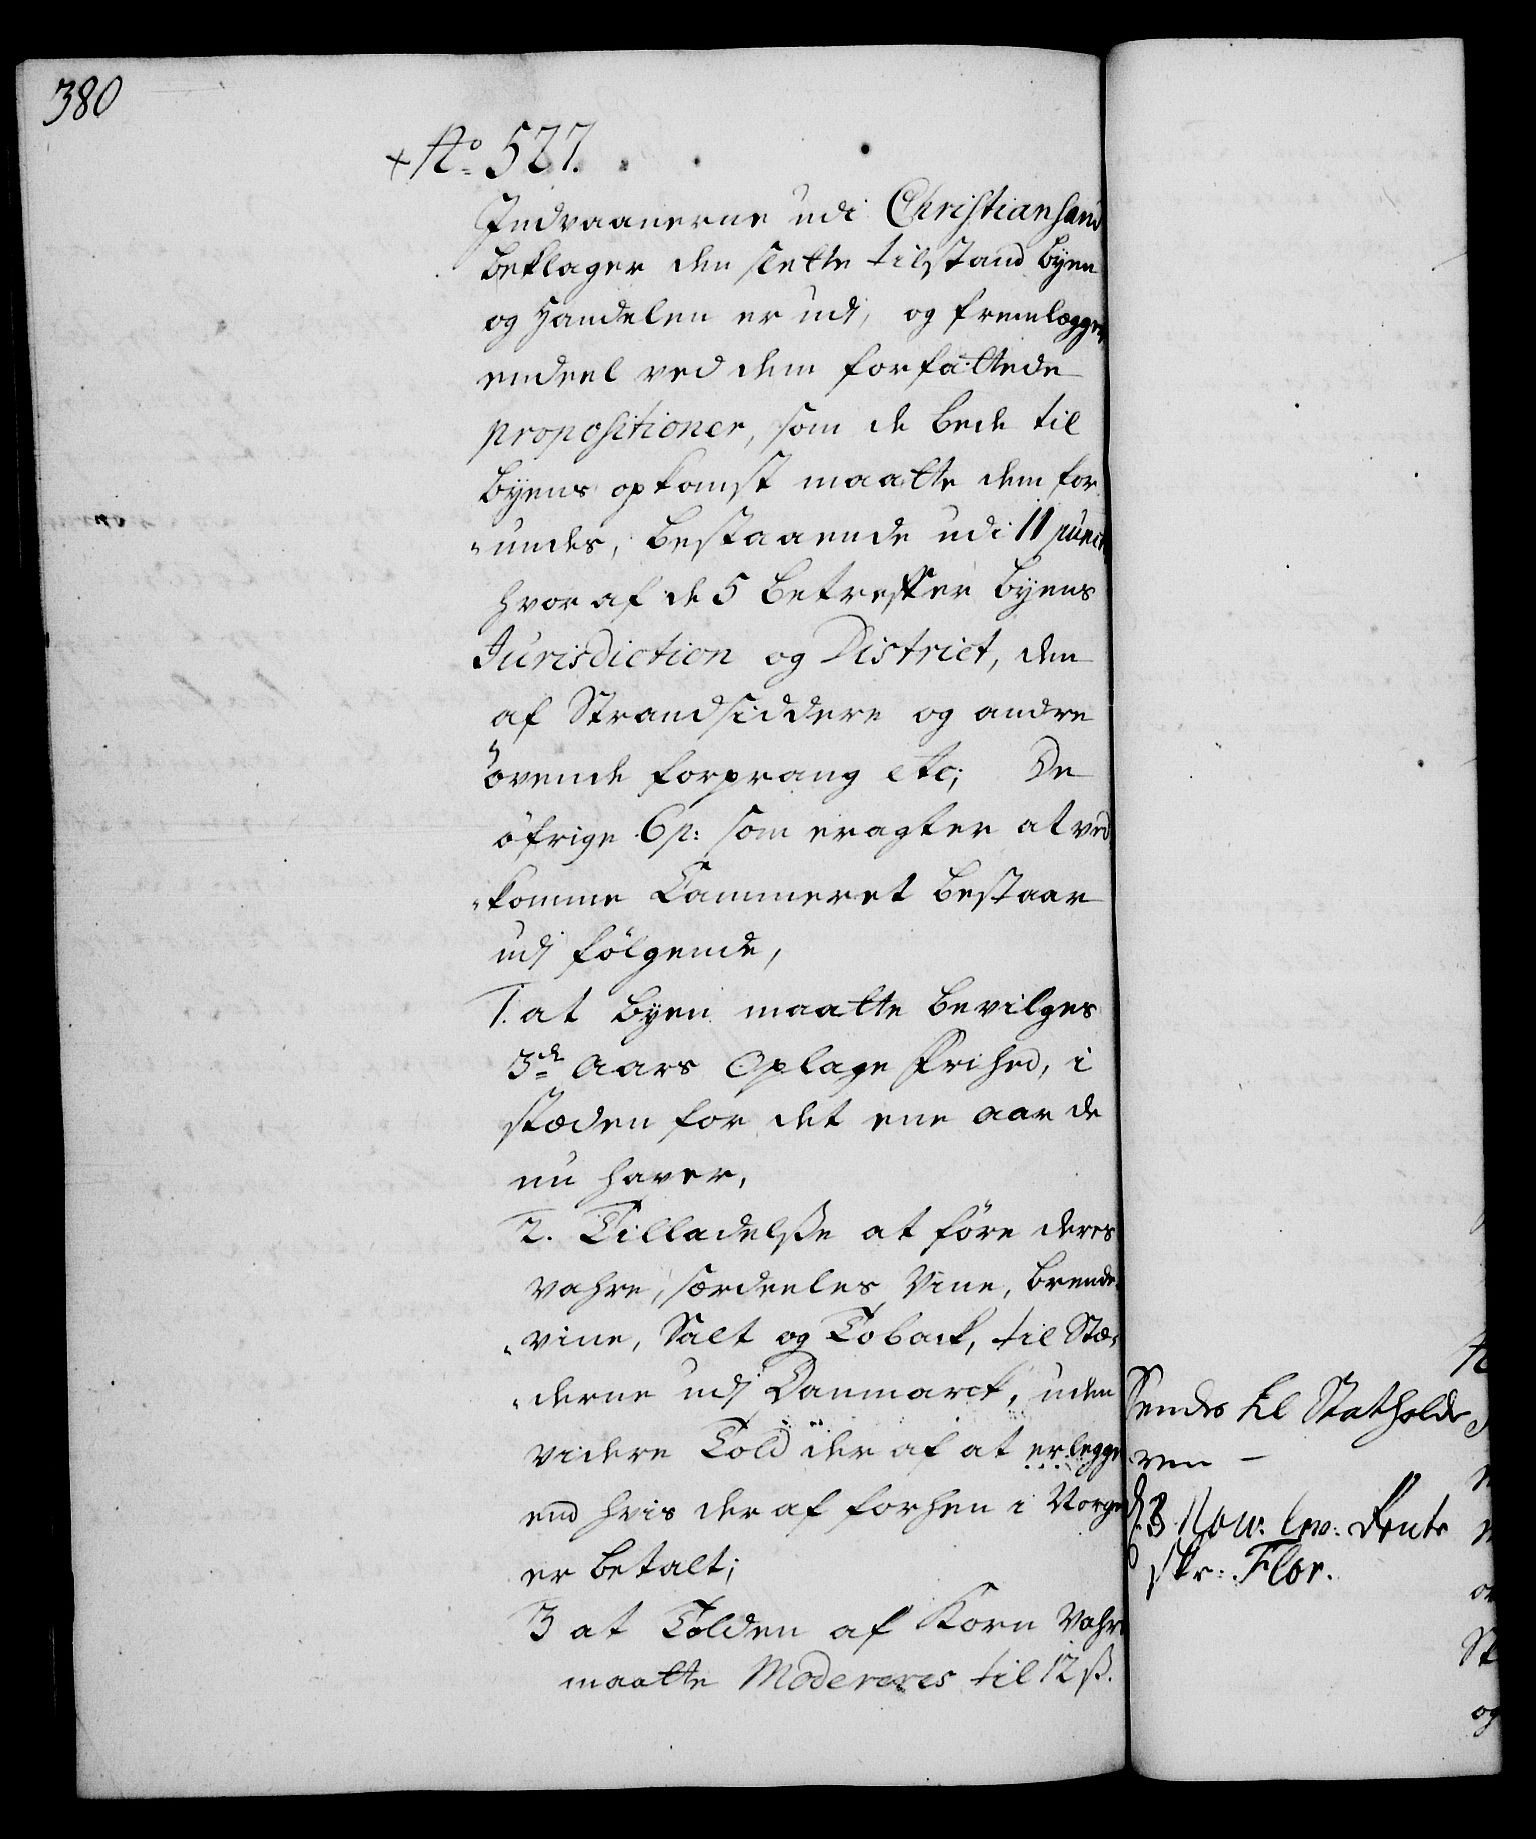 380
+ No 527.
Indvaanerne udi Christiansand
beklager den slette tilstand byen
og Handelen er udi, og fremlægger
endeel ved dem forfattede
propositioner, som de bede til
byens opkomst maatte dem for
undes, bestaaende udi 11 punct
hvor af de 5 betreffer byens
Jurisdiction og District, den
af Strandsiddere og andre
övende forprang etc; De
öfrige 6 p: som eragter at ved
komme Cammeret bestaar
udi fölgende,
1. at byen maatte bevilges
3de Aars Oplags Frihed, i
stæden for det ene aar de
nu haver,
2. Tilladelsse at före deres
vahre, særdeeles Vine, brende
vine, Salt og Toback, til Stæ
derne udi Danmarck, uden
videre Told der af at erlegge
end hvis der af forhen i Norge
er betalt;
3 at Tolden af Korn Vahre
maatte Modereres til 12 ß.
Sendes til Statholde
ren –
d. 8 Nov: lev: Rente
skr: Flor.